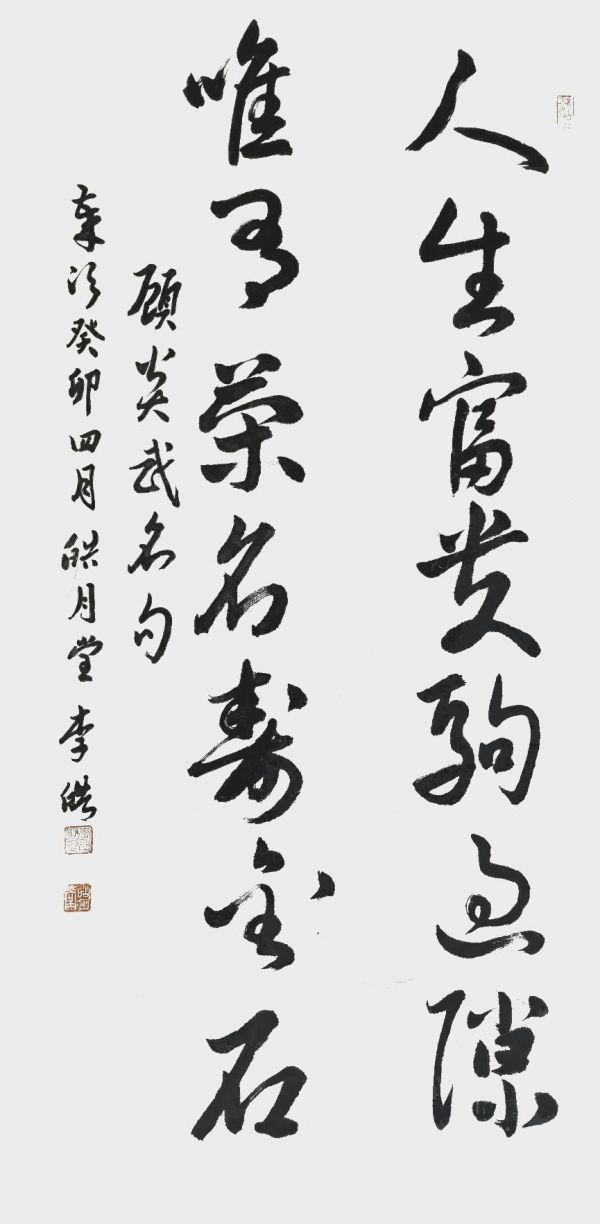 人生富贵驹过隙
唯有荣名寿金石
顾炎武名句
岁次癸卯四月皓月堂李皓